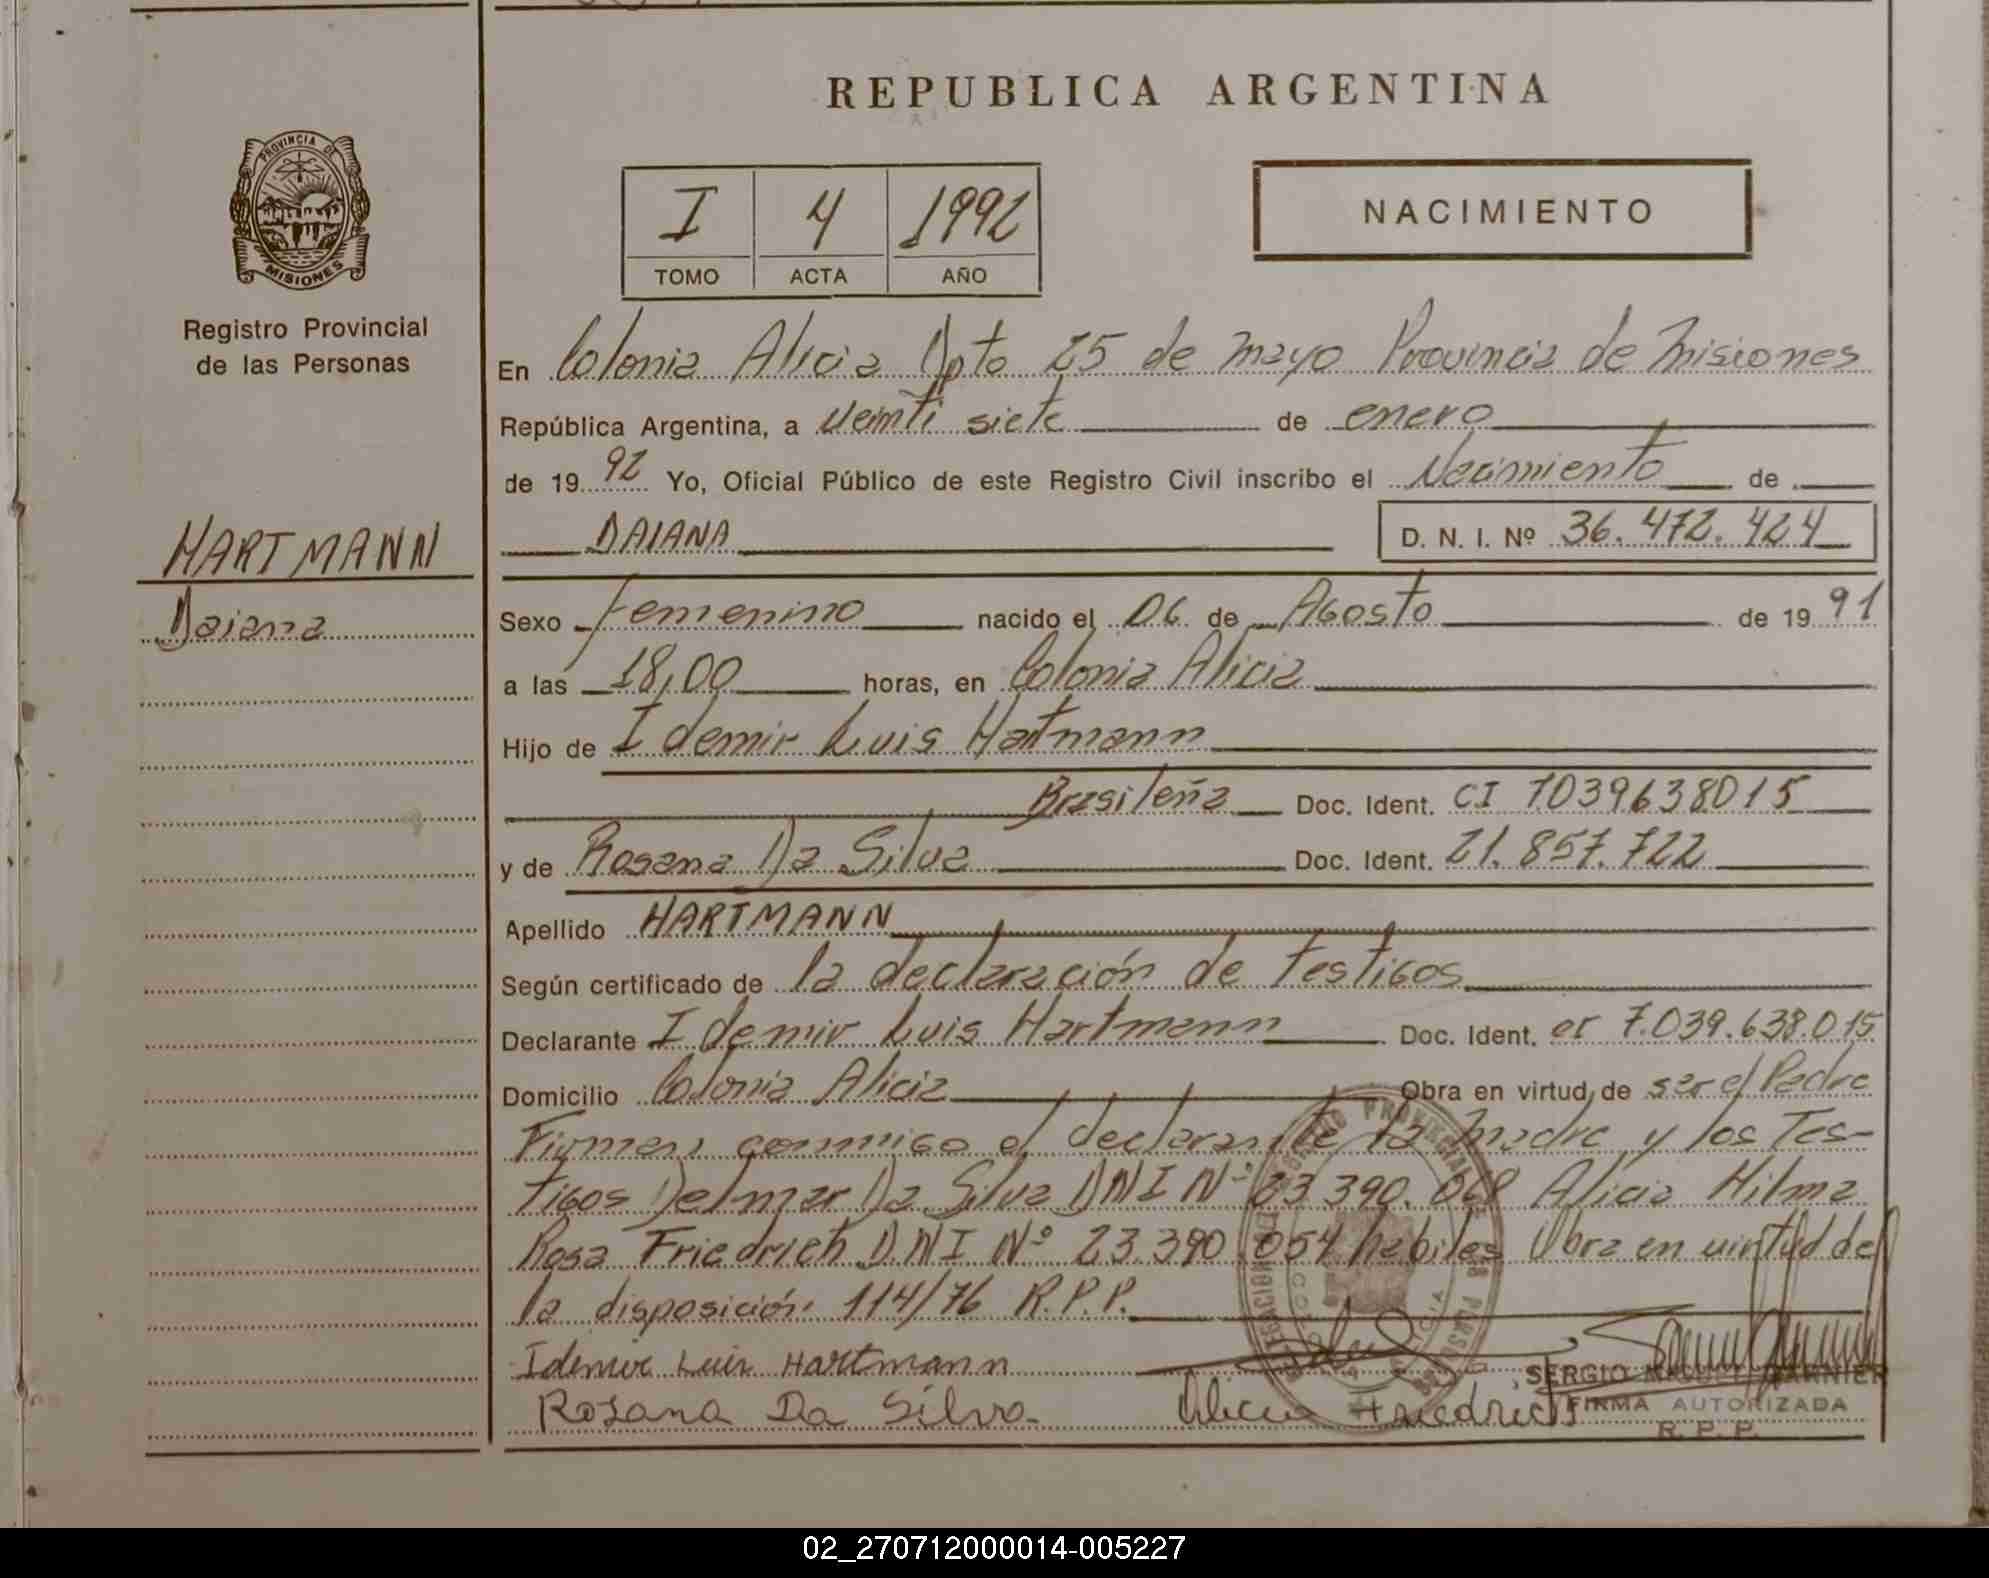 REPUBLICA ARGENTINA
PROVINCIA DE
MISIONES
Registro Provincial
de las Personas
HARTMANN
Daiana
I 4 1992
TOMO ACTA AÑO
NACIMIENTO
En Colonia Alicia Dpto 25 de mayo Provincia de Misiones
República Argentina, a veinti siete de enero
de 1992 Yo, Oficial Público de este Registro Civil inscribo el Nacimiento de
DAIANA D. N. I. Nº 36.472.424
Sexo femenino nacido el 06 de Agosto de 1991
a las 18,00 horas, en Colonia Alicia
Hijo de Idemir Luis Hartmann
Brasileña Doc. Ident. CI 7039638015
y de Rosana Da Silva Doc. Ident. 21.857.722
Apellido HARTMANN
Según certificado de la declaración de testigos
Declarante Idemir Luis Hartmann Doc. Ident. 7.039.638.015
Domicilio Colonia Alicia Obra en virtud de ser el Padre
Firman conmigo el declarante la madre y los Tes-
tigos Delmar Da Silva DNI Nº 23.390.068 Alicia Hilma
Rosa Friedrich D.N.I Nº 23.390.054 habiles Obra en virtud de
la disposición 114/76 R.P.P.
Idemir Luis Hartmann
Rosana Da Silva Alicia Friedrich
SERGIO GARNIER
FIRMA AUTORIZADA
R. P. P.
02_270712000014-005227